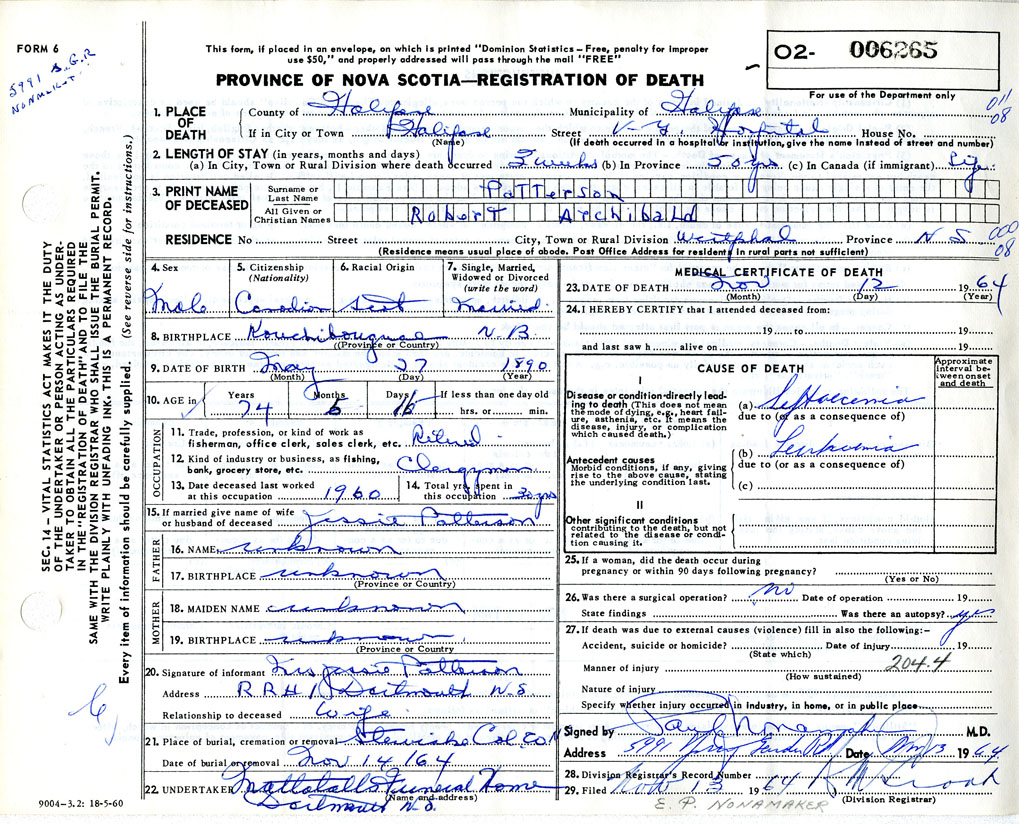 FORM 6
5991 S.G.R
NONMLKLT.
This form, if placed in an envelope, on which is printed "Dominion Statistics – Free, penalty for improper
use $50," and properly addressed will pass through the mail "FREE"
PROVINCE OF NOVA SCOTIA—REGISTRATION OF DEATH
O2- 006265
For use of the Department only
011
08
1. PLACE OF DEATH County of Halifax Municipality of Halifax
If in City or Town Halifax Street V.G. Hospital House No.
(Name) (If death occurred in a hospital or institution, give the name instead of street and number)
2. LENGTH OF STAY (in years, months and days)
(a) In City, Town or Rural Division where death occurred 3 weeks (b) In Province 50 yrs (c) In Canada (if immigrant) Life
3. PRINT NAME OF DECEASED Surname or Last Name PATTERSON
All Given or Christian Names ROBERT ARCHIBALD
000
08
RESIDENCE No Street City, Town or Rural Division Westphal Province N S
(Residence means usual place of abode. Post Office Address for resident in rural parts not sufficient)
4. Sex Male
5. Citizenship (Nationality) Canadian
6. Racial Origin Scot
7. Single, Married, Widowed or Divorced (write the word) Married
8. BIRTHPLACE Kouchibouguac N.B.
(Province or Country)
9. DATE OF BIRTH May 27 1890
(Month) (Day) (Year)
10. AGE in Years 74 Months 5 Days 16 If less than one day old
hrs. or min.
OCCUPATION
11. Trade, profession, or kind of work as
fisherman, office clerk, sales clerk, etc. Retired
12. Kind of industry or business, as fishing,
bank, grocery store, etc. Clergyman
13. Date deceased last worked
at this occupation 1960
14. Total yrs. spent in
this occupation 30 yrs
15. If married give name of wife
or husband of deceased Jessie Patterson
FATHER
16. NAME unknown
17. BIRTHPLACE unknown
(Province or Country)
MOTHER
18. MAIDEN NAME unknown
19. BIRTHPLACE unknown
(Province or Country)
20. Signature of informant Mrs Jessie Patterson
Address R R # 1 Dartmouth N.S.
Relationship to deceased Wife
21. Place of burial, cremation or removal Stewiacke Col. Co N
Date of burial or removal Nov 14/64
22. UNDERTAKER Mattatall's Funeral Home
(Name and address)
Dartmouth N.S.
9004–3.2: 18-5-60
MEDICAL CERTIFICATE OF DEATH
23. DATE OF DEATH Nov 12 1964
(Month) (Day) (Year)
24. I HEREBY CERTIFY that I attended deceased from:
19 to 19
and last saw h alive on 19
CAUSE OF DEATH
Approximate interval between onset and death
I
Disease or condition directly leading to death (This does not mean the mode of dying, e.g., heart failure, asthenia, etc. It means the disease, injury, or complication which caused death.)
(a) Septicemia
due to (or as a consequence of)
Antecedent causes
Morbid conditions, if any, giving rise to the above cause, stating the underlying condition last.
(b) Leukemia
due to (or as a consequence of)
(c)
II
Other significant conditions
contributing to the death, but not related to the disease or condition causing it.
25. If a woman, did the death occur during
pregnancy or within 90 days following pregnancy?
(Yes or No)
26. Was there a surgical operation? no Date of operation 19
State findings Was there an autopsy? yes
27. If death was due to external causes (violence) fill in also the following:–
Accident, suicide or homicide? Date of injury 19
(State which)
Manner of injury 204.4
(How sustained)
Nature of injury
Specify whether injury occurred in Industry, in home, or in public place
Signed by Nonamaker M.D.
Address 5991 Spring Garden Rd Date Nov 13 1964
28. Division Registrar's Record Number
29. Filed Nov 13 1964
(Division Registrar)
E. P. NONAMAKER
SEC. 14 – VITAL STATISTICS ACT MAKES IT THE DUTY
OF THE UNDERTAKER OR PERSON ACTING AS UNDER-
TAKER TO OBTAIN ALL THE PARTICULARS REQUIRED
IN THE "REGISTRATION OF DEATH" AND TO FILE THE
SAME WITH THE DIVISION REGISTRAR WHO SHALL ISSUE THE BURIAL PERMIT.
WRITE PLAINLY WITH UNFADING INK. THIS IS A PERMANENT RECORD.
Every item of information should be carefully supplied. (See reverse side for instructions.)